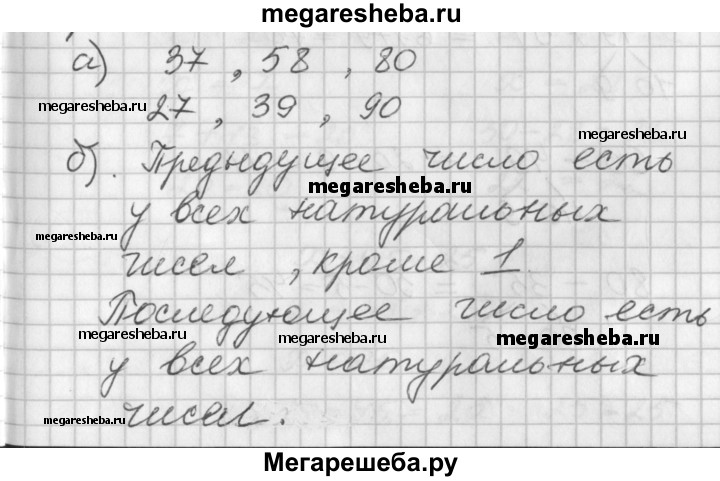 megaresheba.ru
а) 37 , 58 , 80
megaresheba.ru
27 , 39 , 90
megaresheba.ru
б). Предыдущее число есть
megaresheba.ru
у всех натуральных
megaresheba.ru
чисел , кроме 1
Последующее число есть
megaresheba.ru megaresheba.ru megaresheba.ru
у всех натуральных
megaresheba.ru
чисел.
Мегарешеба.ру